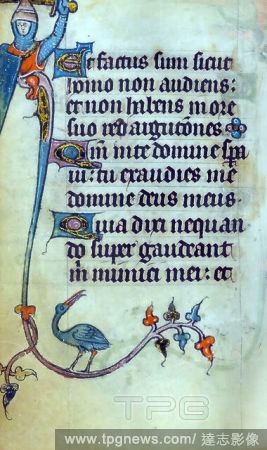 Et factus sum sicut
homo non audiens:
et non habens in ore
suo redargutiones
Qm in te domine spa
ui: tu exaudies me
domine deus meus.
Quia dixi nequan
do super gaudeant
m inimici mei: et
TPG
www.tpgnews.com/ 達志影像